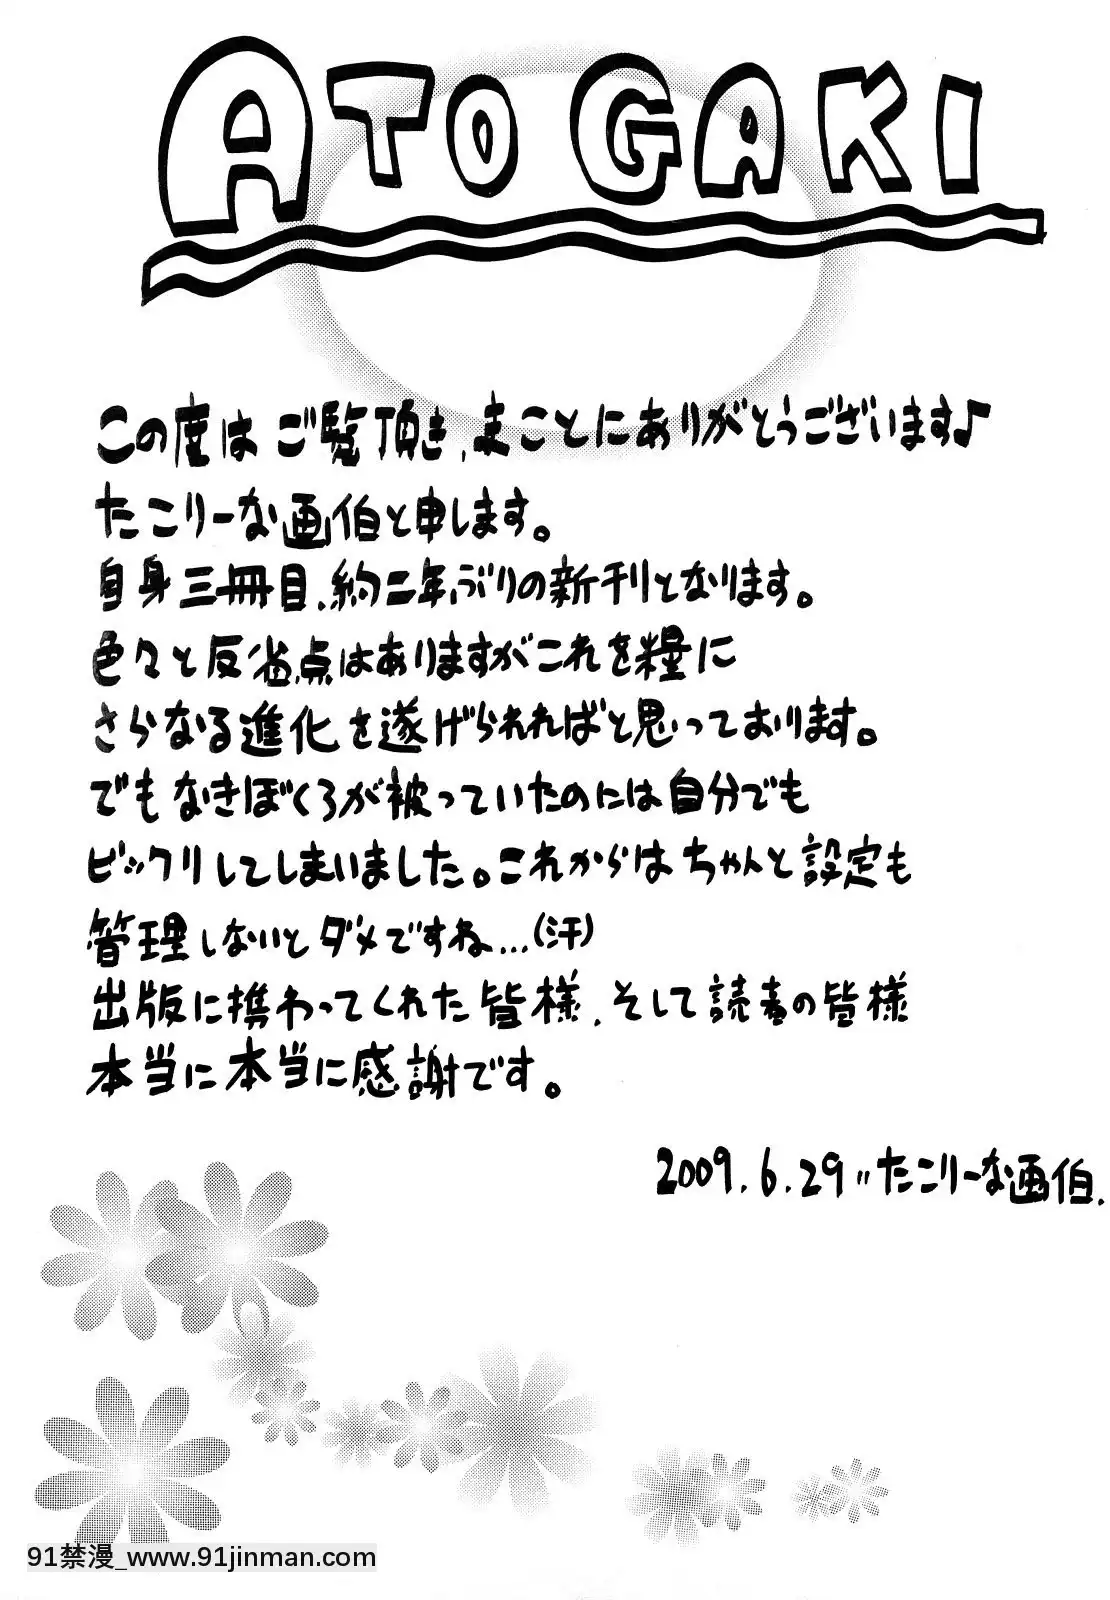 ATOGAKI
この度は ご覧頂き、まことにありがとうございます♪
たこりーな画伯と申します。
自身三冊目、約二年ぶりの新刊となります。
色々と反省点はありますがこれを糧に
さらなる進化を遂げられればと思っております。
でもなきぼくろが被っていたのには自分でも
ビックリしてしまいました。これからはちゃんと設定も
管理しないとダメですね…(汗)
出版に携わってくれた皆様、そして読者の皆様
本当に本当に感謝です。
2009.6.29〃たこりーな画伯.
91禁漫_www.91jinman.com